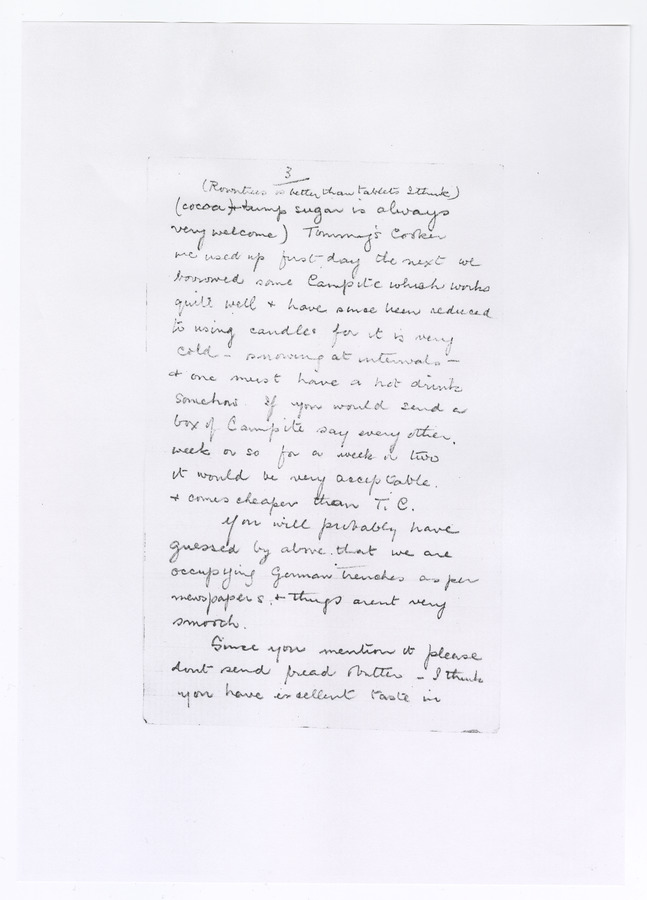 3
(Rowntrees is better than tablets I think)
(cocoa + lump sugar is always
very welcome) Tommy's Cooker
we used up first day the next we
borrowed some Campite which works
quite well + have since been reduced
to using candles for it is very
cold – snowing at intervals –
+ one must have a hot drink
somehow. If you would send a
box of Campite say every other
week or so for a week or two
it would be very acceptable.
+ comes cheaper than T. C.
You will probably have
guessed by above that we are
occupying German trenches as per
newspapers, + things arent very
smooth.
Since you mention it please
dont send bread + butter – I think
you have excellent taste in